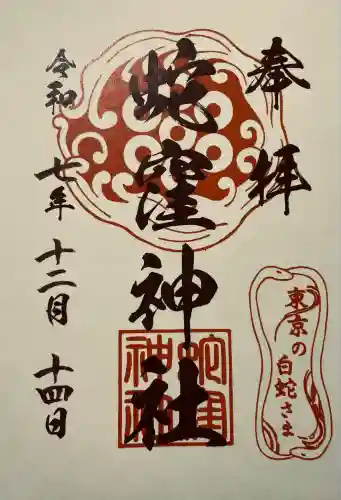 奉拝
蛇窪神社
令和七年十二月十四日
東京の
白蛇さま
蛇窪
神社